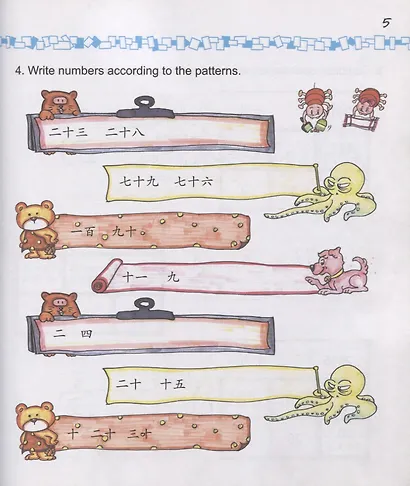 5
4. Write numbers according to the patterns.
二十三 二十八
七十九 七十六
一百 九十
十一 九
二 四
二十 十五
十 二十 三十